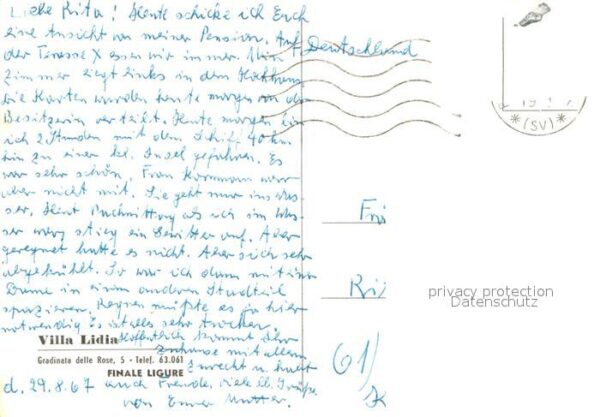 Liebe Rita! Heute schicke ich Euch
eine Ansicht von meiner Pension. Auf
der Terasse X essen wir immer. Mein
Zimmer liegt links in dem
Die Karten wurden heute morgen von der
Besitzerin verteilt. Heute morgen bin
ich 2 Stunden mit dem Schiff 40 km
hin zu einer kl. Insel gefahren. Es
war sehr schön. Frau Kornmann war
aber nicht mit. Sie geht nur ins Was
ser. Heut Nachmittag als ich im Was
ser war stieg ein Gewitter auf. Aber
geregnet hatte es nicht. Aber sich sehr
abgekühlt. So war ich dann mit einer
Dame in einem anderen Stadtteil
spazieren. Regnen müßte es ja hier
notwendig. Es ist alles sehr trocken.
Hoffentlich kommt Ihr
zuhause mit allem
zurecht u. habt
auch Freude, viele lb. Grüße
von Eurer Mutter.
d. 29.8.67
Villa Lidia
Gradinata delle Rose, 5 - Telef. 63.061
FINALE LIGURE
Deutschland
(SV)
Ri
61
privacy protection
Datenschutz